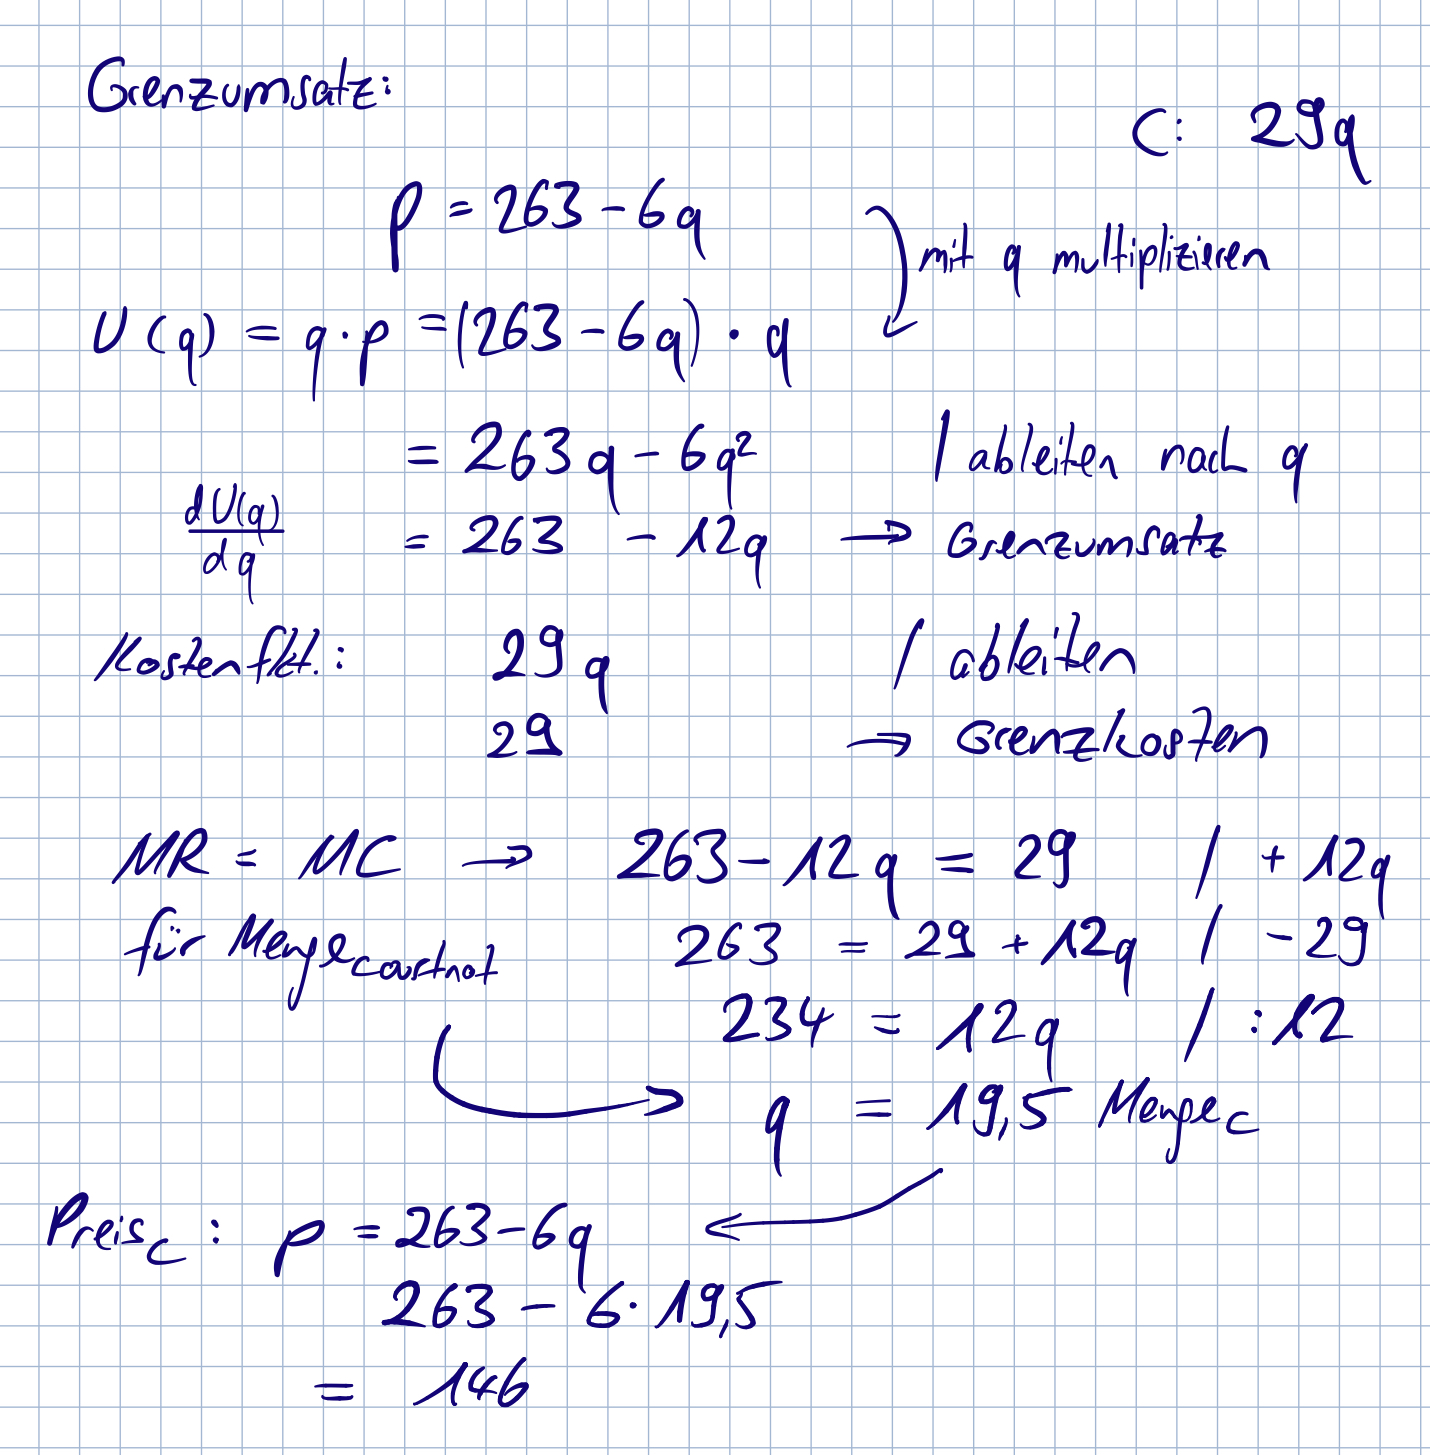 Grenzumsatz:
C: 29q
p = 263 - 6q
mit q multiplizieren
U(q) = q · p = (263 - 6q) · q
= 263q - 6q² / ableiten nach q
dU(q)/dq = 263 - 12q → Grenzumsatz
Kostenfkt.: 29q / ableiten
29 → Grenzkosten
MR = MC → 263 - 12q = 29 / + 12q
für Menge_Courtnot 263 = 29 + 12q / - 29
234 = 12q / : 12
q = 19,5 Menge_C
Preis_C: p = 263 - 6q
263 - 6 · 19,5
= 146